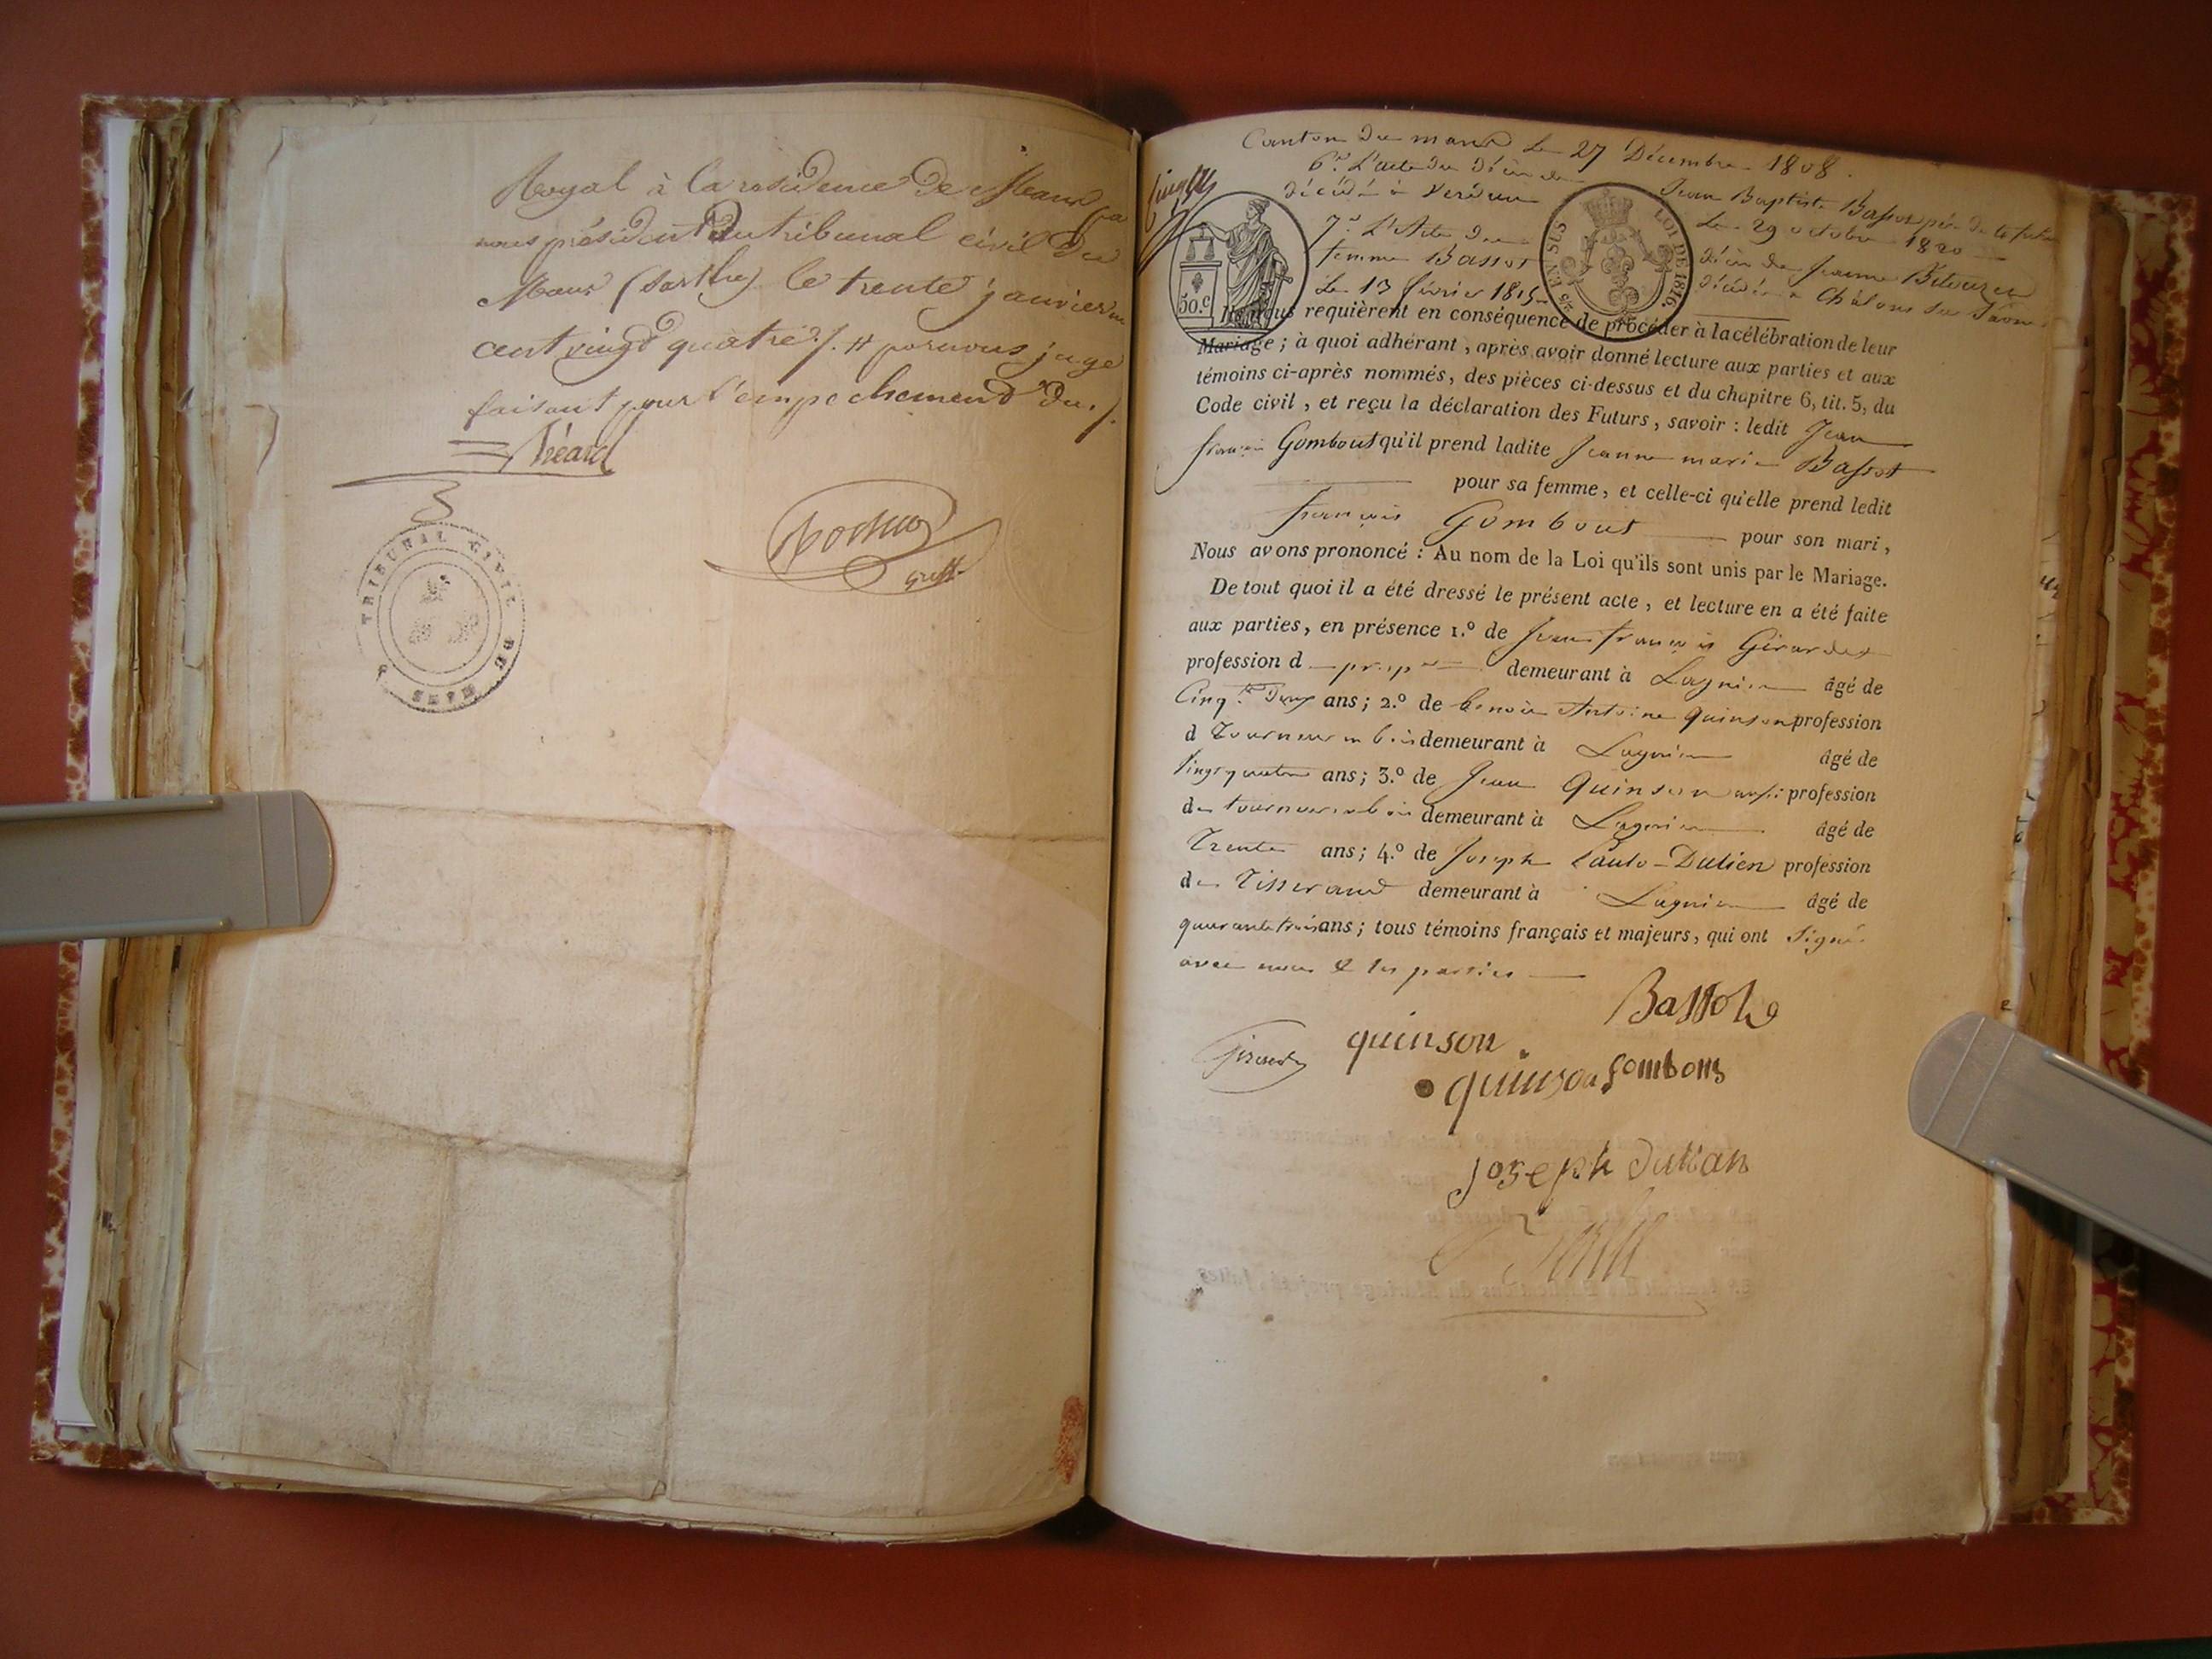 Royal à la residence de Mans
nous président du tribunal civil du
Mans (Sarthe) le trente janvier
cent vingt quatre ./. # par nous juge
faisant pour l'empechement du ./.
TRIBUNAL CIVIL DU
Canton du mans Le 27 Décembre 1808.
6.° L'acte du Décès de Jean Baptiste Bassot père de la future
décédé à Verdun Le 29 octobre 1820
7.° L'Acte du décès de Jeanne
femme Bassot décédée a Châlons sur Saone
Le 13 février 1815
50.c
EN SUS
LOI DE 1816.
nous requièrent en conséquence de procéder à la célébration de leur
Mariage ; à quoi adhérant , après avoir donné lecture aux parties et aux
témoins ci-après nommés, des pièces ci-dessus et du chapitre 6, tit. 5, du
Code civil , et reçu la déclaration des Futurs , savoir : ledit Jean
françois Gombout qu'il prend ladite Jeanne marie Bassot
pour sa femme, et celle-ci qu'elle prend ledit
françois Gombout pour son mari ,
Nous avons prononcé : Au nom de la Loi qu'ils sont unis par le Mariage.
De tout quoi il a été dressé le présent acte , et lecture en a été faite
aux parties, en présence 1.° de Jean françois Girardet
profession d prop.re demeurant à Lagnieu âgé de
Cinq.te Deux ans ; 2.° de benoit Antoine Quinson profession
d Tourneur en bois demeurant à Lagnieu âgé de
Vingt quatre ans ; 3.° de Jean Quinson aussi profession
de tourneur en bois demeurant à Lagnieu âgé de
Trente ans ; 4.° de Joseph Dutien profession
de Tisserand demeurant à Lagnieu âgé de
quarante trois ans ; tous témoins français et majeurs, qui ont Signé
avec nous & les parties
Bassot
quinson
quinson gombout
joseph dutian